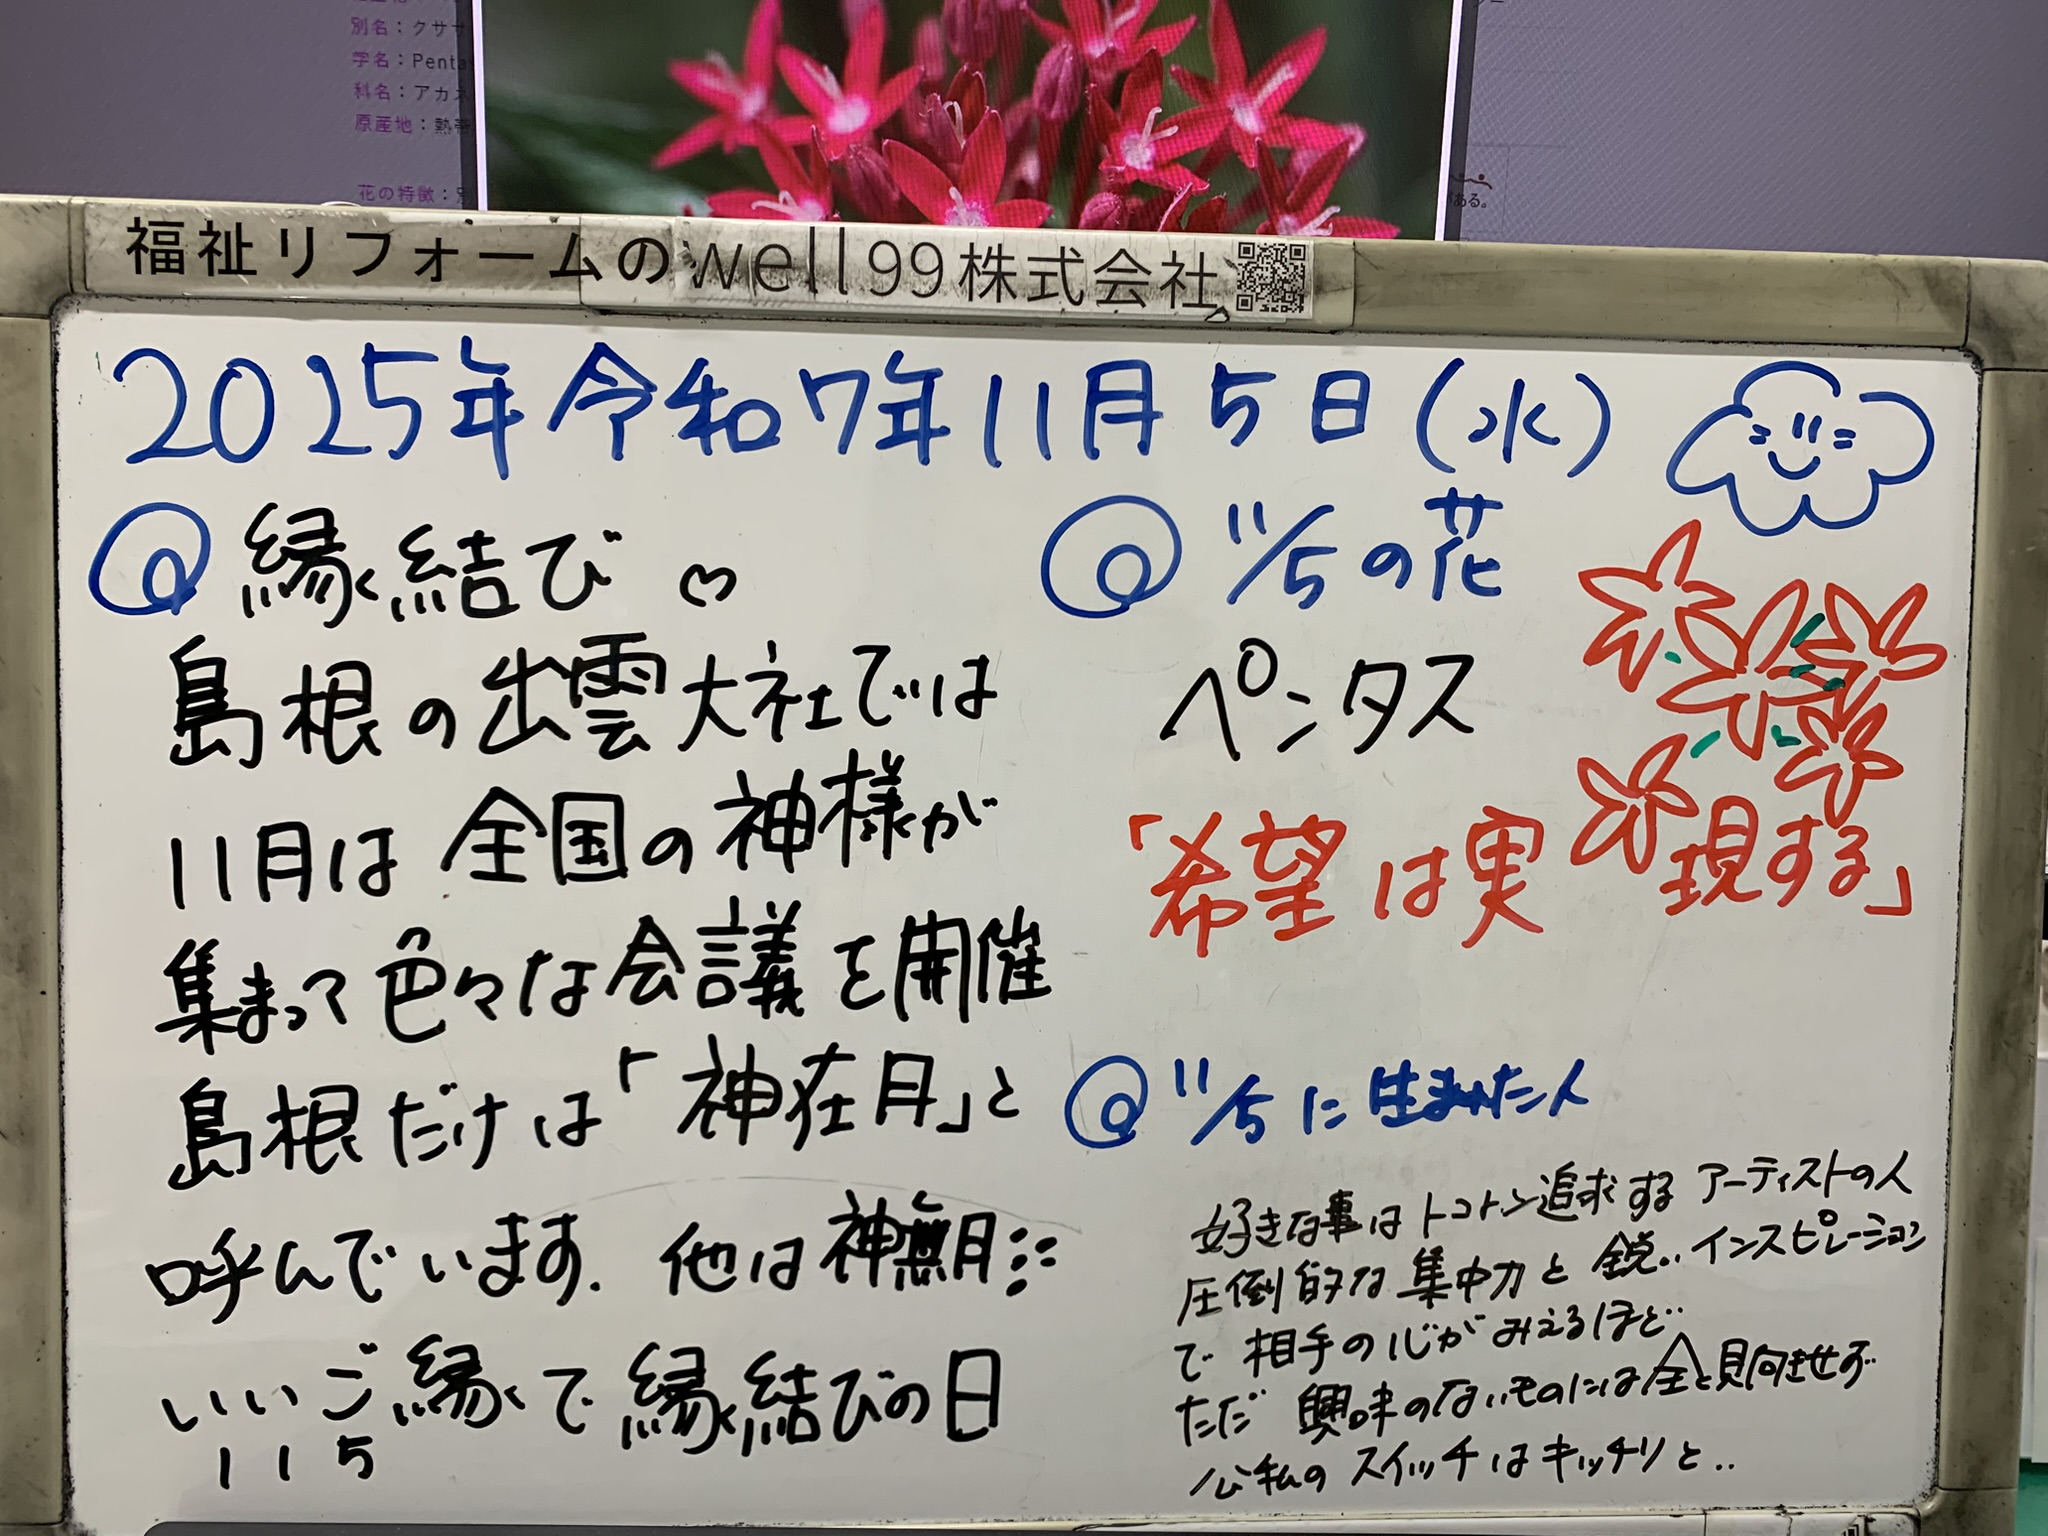 別名：クサ
学名：Penta
科名：アカネ
原産地：熱帯
花の特徴：
ある。
福祉リフォームのwell99株式会社
2025年令和7年11月5日(水)
縁結び
島根の出雲大社では
11月は全国の神様が
集まって色々な会議を開催
島根だけは「神在月」と
呼んでいます. 他は神無月
いいご縁で縁結びの日
1 1 5
11/5の花
ペンタス
「希望は実現する」
11/5に生まれた人
好きな事はトコトン追求するアーティストの人
圧倒的な集中力と鋭いインスピレーション
で相手の心がみえるほど..
ただ興味のないものには全と見向きせず
公私のスイッチはキッチリと..